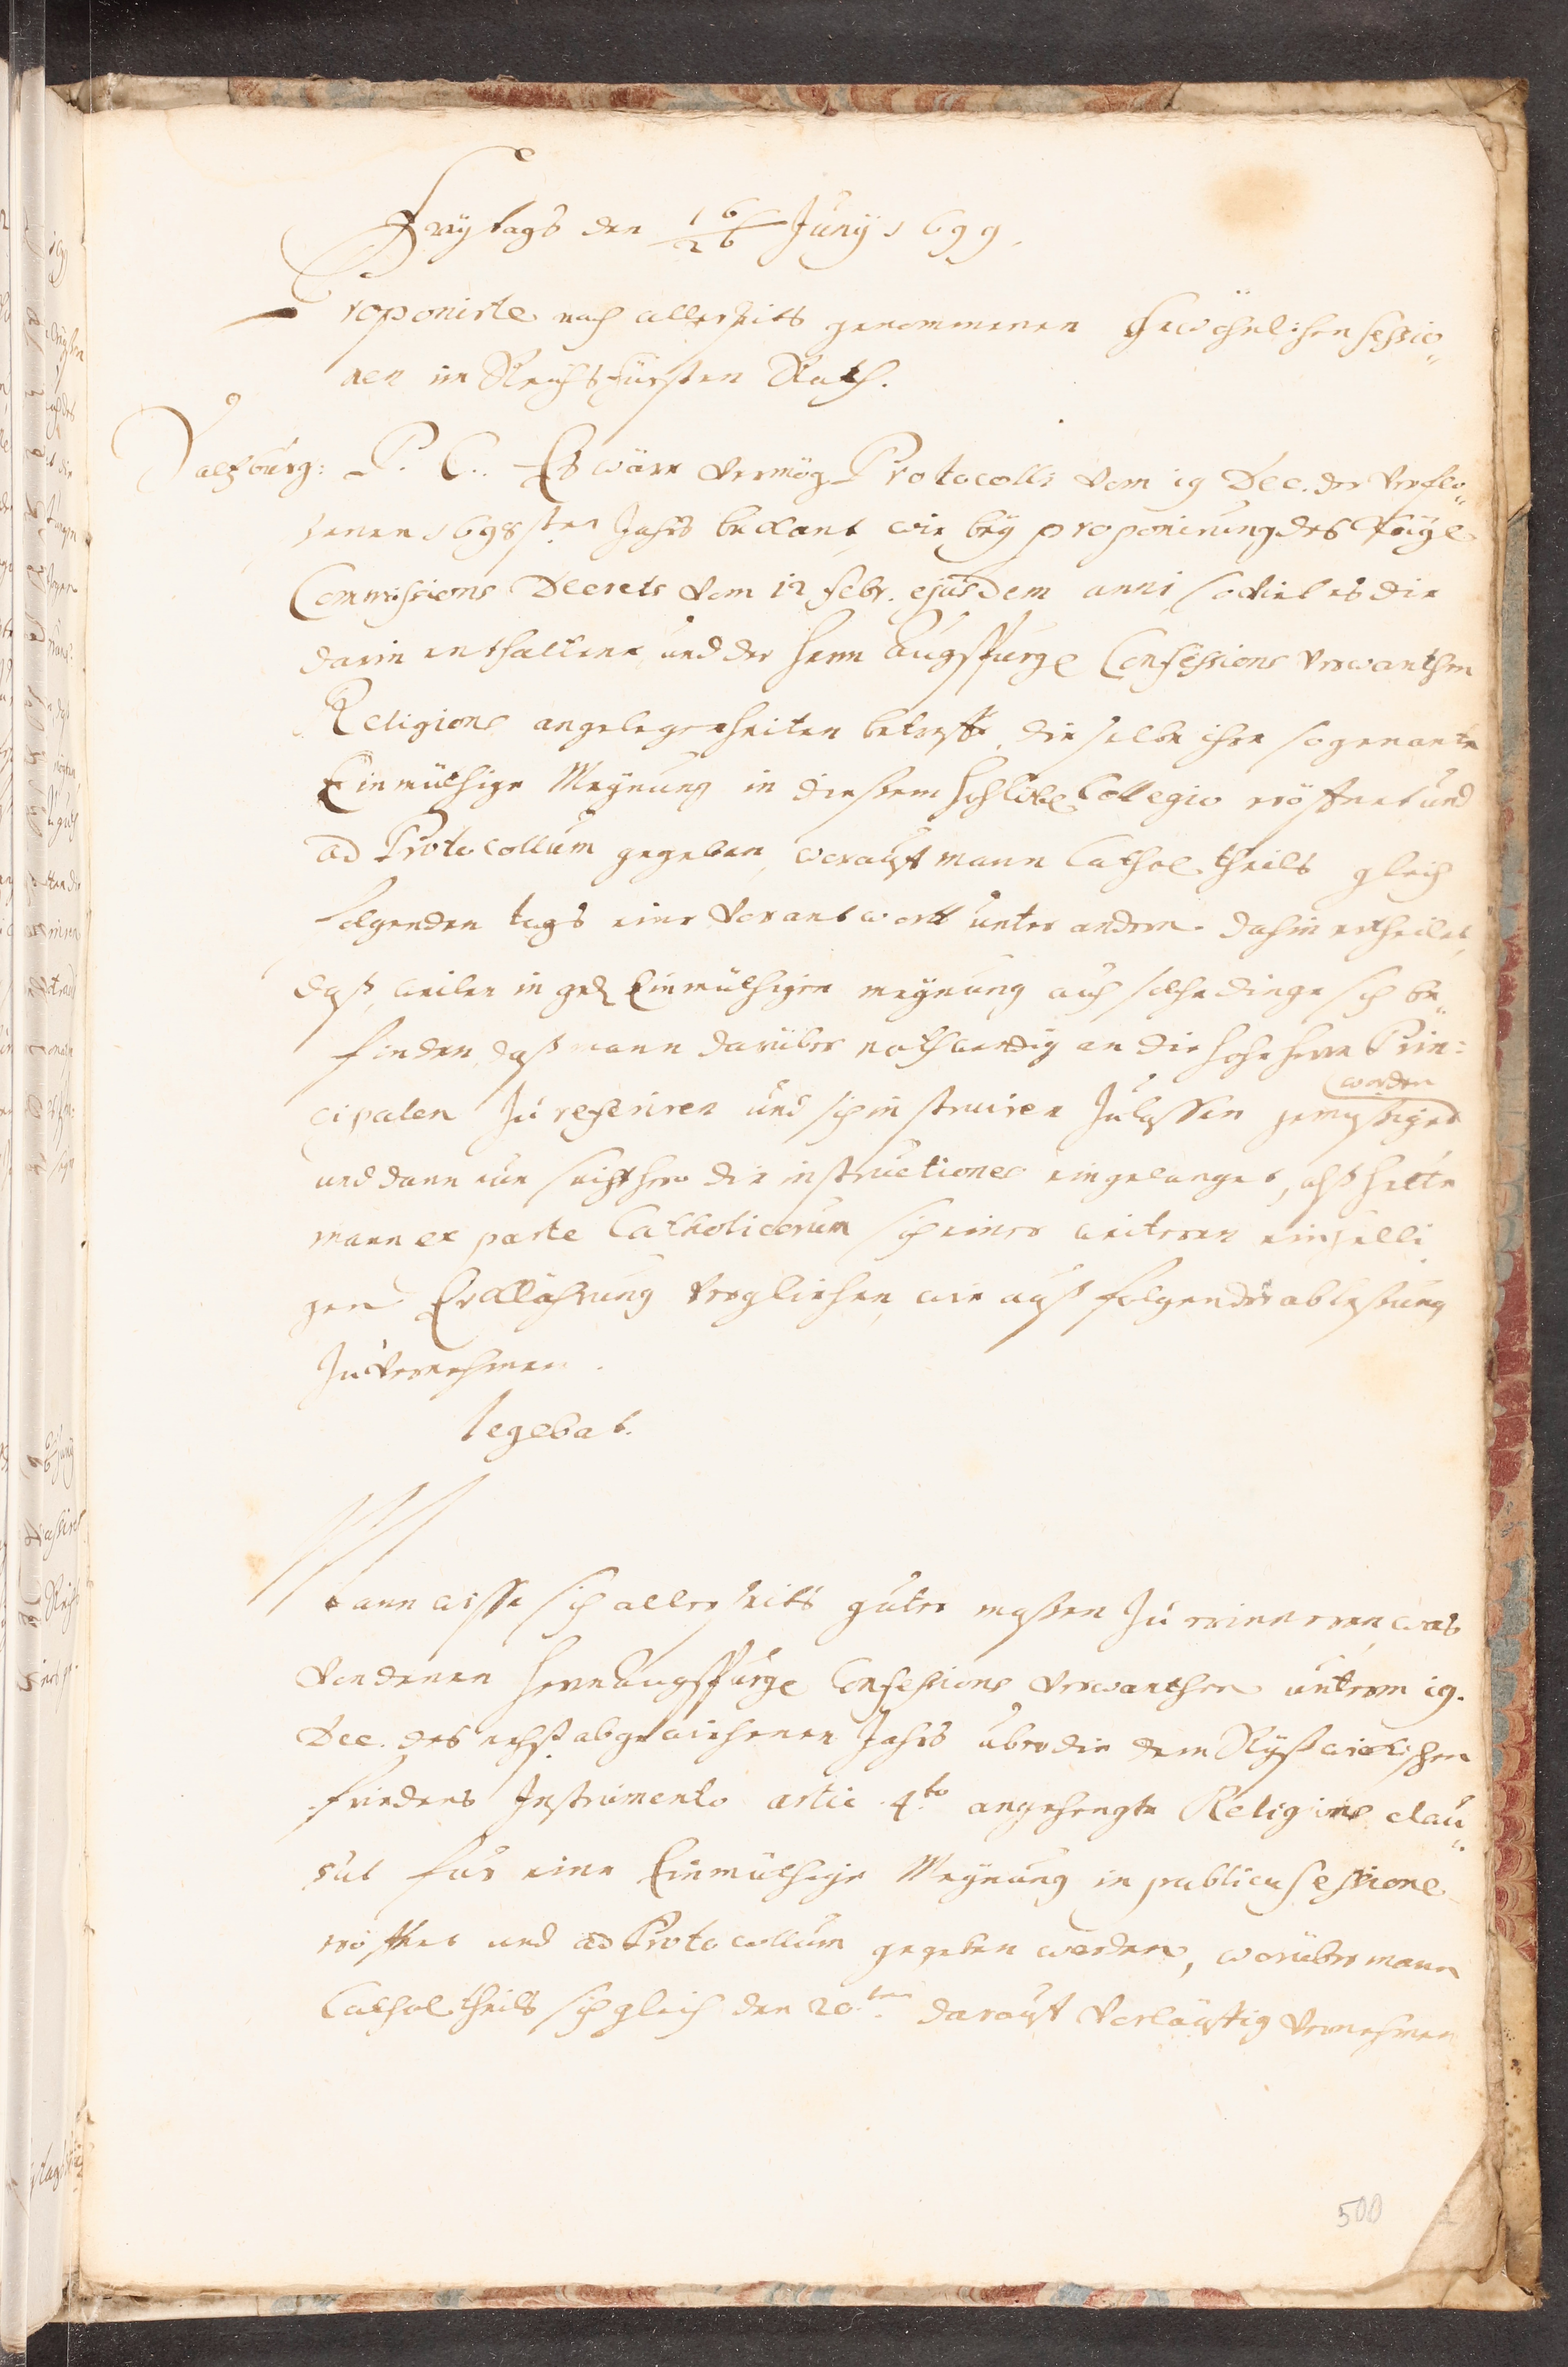 Freytags den 16/26 Junÿ 1699.
Proponirte nach allerseits genommenen Gewöhnlichen Sessio„
nen im Reichs Fürsten Rath.
Saltzburg: P. C. Es wäre vermög Protocolli vom 19 Dec. des verflo„
senen 1698sten Jahrs bekant, wie beÿ proponirung des Kaÿl.
Commissions Decrets vom 12 Febr. ejusdem anni so viel es die
darin enthaltene und der Herrn Augspurg. Confessions Verwanthen
Religions angelegenheiten betrifft, dieselbe ihre sogenante
Einmüthige Meÿnung in dießem hochlöbl. Collegio eröffnet und
ad Protocollum gegeben, worauf mann Cathol. theils gleich
folgenden tags eine Vorantwortt unter andern dahin ertheilet,
daß, weilen in ged. Einmüthigen meÿnung auch solche dinge sich be„
finden, daß mann darüber nothwendig an die hohe Herrn Prin:
cipalen zu referiren und sich instruiren zulassen gemüssiget
worden
und dann nun seithero die instructiones eingelanget, alß hette
mann ex parte Catholicorum sich einer weiteren einhelli
gen Erklährung verglichen, wie auß folgender ablesung
zuvernehmen.
legebat.
Mann wisse sich allerseits guter maßen zu erinneren, was
von denen Herrn Augspurg. Confessions Verwanthen unterm 19.
Dec. des nechst abgewichenen Jahrs über die dem Rÿßwickischen
Friedens Instrumento artic. 4.to angehengte Religions clau„
sul für eine Einmüthige Meÿnung in publica sessione
eröffnet und ad Protocollum gegeben worden, worüber mann
Cathol. theils sich gleich den 20.ten darauf vorläuffig vernehmen
500